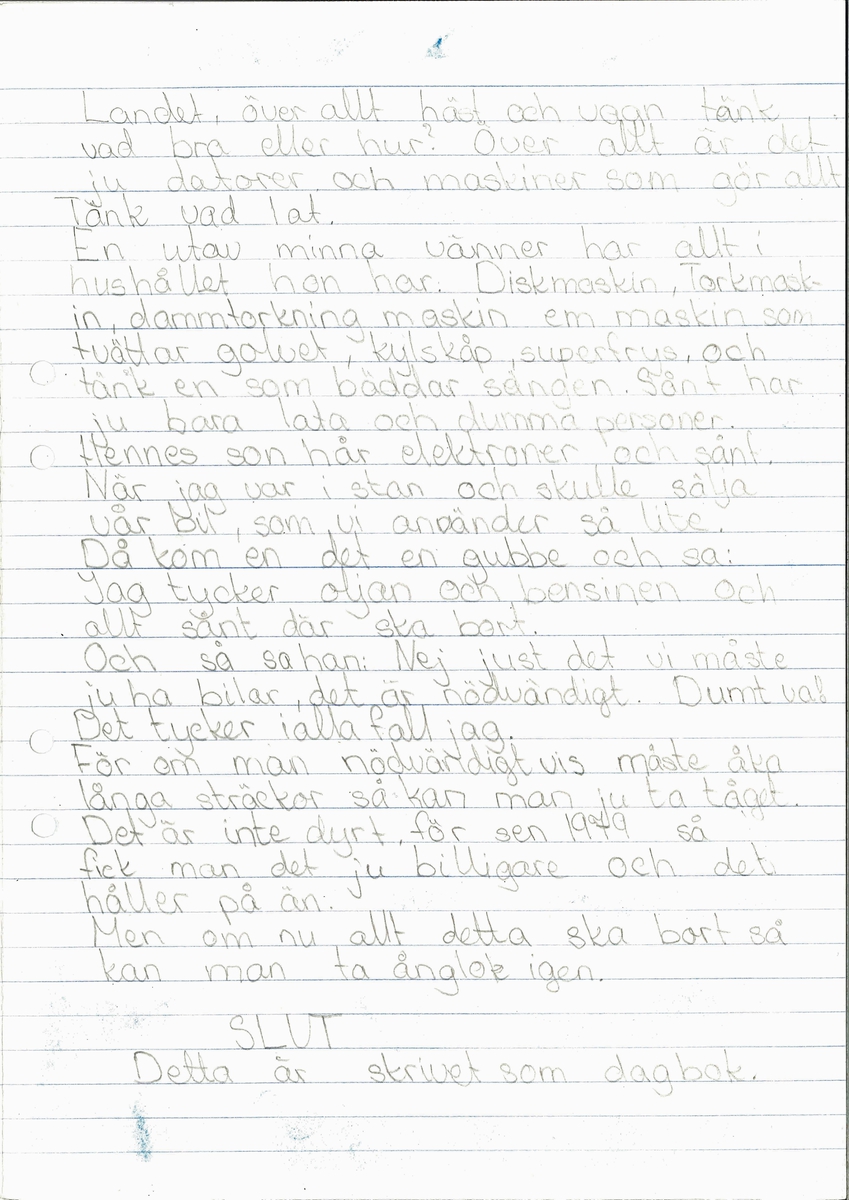 4
Landet, över allt häst och vagn tänk
vad bra eller hur? Över allt är det
ju datorer och maskiner som gör allt
Tänk vad lat.
En utav minna vänner har allt i
hushållet hon har: Diskmaskin, Torkmask-
in, dammtorkning maskin em maskin som
tvättar golvet, kylskåp, superfrys, och
tänk en som bäddar sängen. Sånt har
ju bara lata och dumma personer.
Hennes son hår elektroner och sånt.
När jag var i stan och skulle sälja
vår bil, som vi använder så lite.
Då kom en det en gubbe och sa:
Jag tycker oljan och bensinen och
allt sånt där ska bort.
Och så sa han: Nej just det vi måste
ju ha bilar, det är nödvändigt. Dumt va!
Det tycker iallafall jag.
För om man nödvärdigtvis måste åka
långa sträckor så kan man ju ta tåget.
Det är inte dyrt, för sen 1979 så
fick man det ju billigare och det
håller på än.
Men om nu allt detta ska bort så
kan man ta ånglok igen.
SLUT
Detta är skrivet som dagbok.